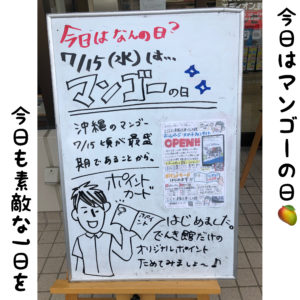 今日はマンゴーの日🥭
今日はなんの日?
7/15(水)は…
マンゴーの日
沖縄のマンゴー
7/15頃が最盛
期であることから。
OPEN!!
ポイント
カード
はじめました。
でんき館だけの
オリジナルポイント
ためてみましょ〜♪
今日も素敵な一日を